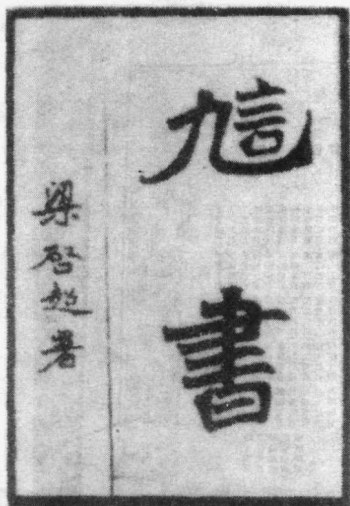 訄書
梁啓超署